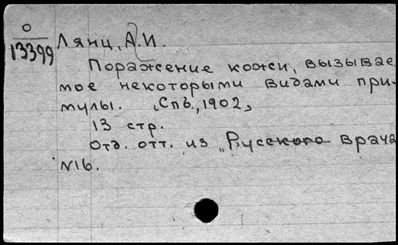 О
13399
Лянц, А.И.
Поражение кожи, вызывае
мое некоторыми видами при-
мулы. Спб., 1902,
13 стр.
Отд. отт. из „Русского врача
N16.